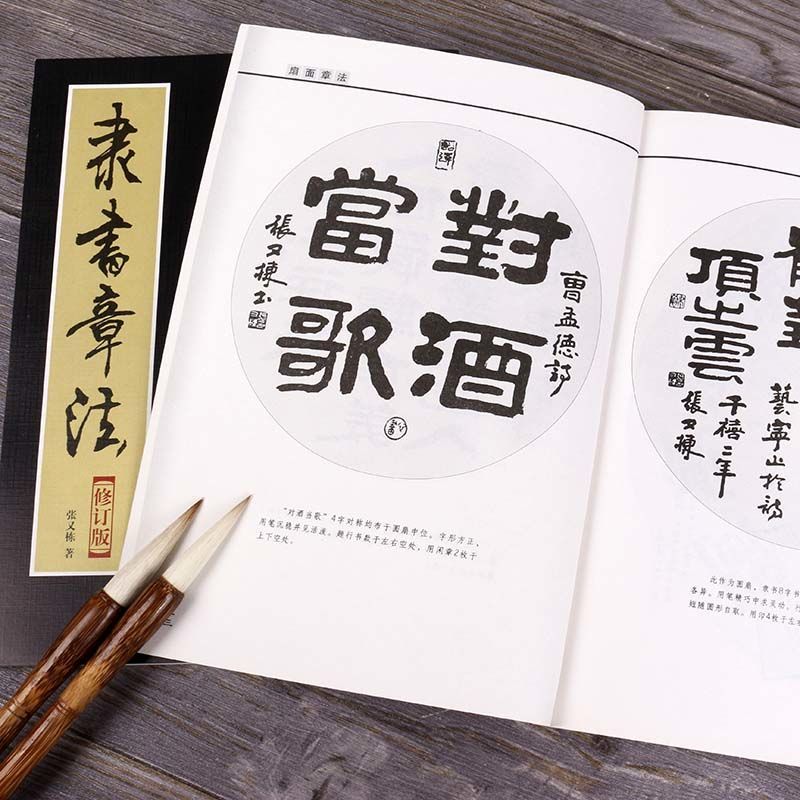 隶書章法
(修订版)
张又栋 著
扇面章法
對酒
當歌
曹孟德詩
張又棟书
“对酒当歌”4字对称均布于圆扇中位。字形方正、
用笔沉稳并见活泼。题行书款于左右空处，用闲章2枚于
上下空处。
頂上雲
千禧二年
張又棟
此作为圆扇，隶书8字书
各异。用笔精巧中求灵动，
短随圆形自取。用印4枚于左